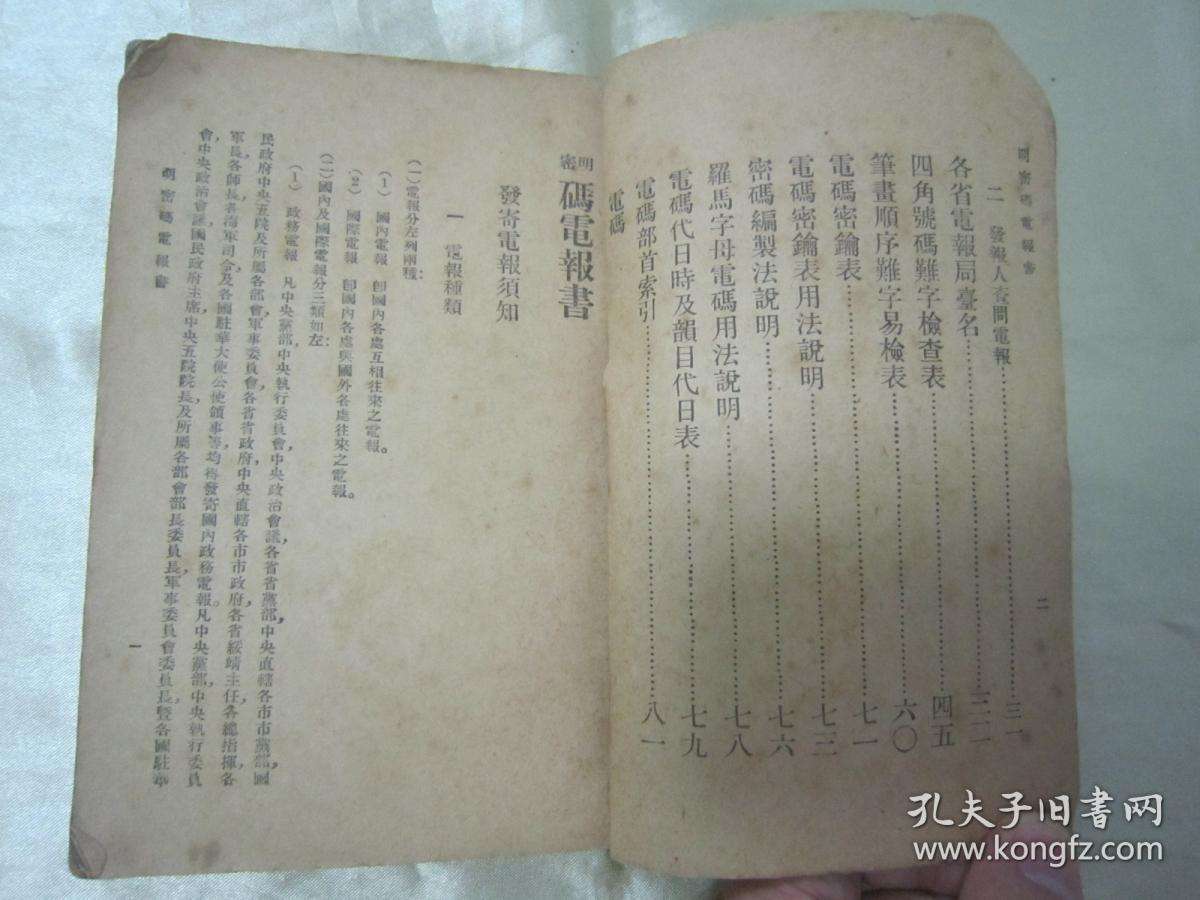 明密碼電報書
二
二 發報人查問電報……三一
各省電報局臺名……三二
四角號碼難字檢查表……四五
筆畫順序難字易檢表……六〇
電碼密鑰表……七一
電碼密鑰表用法說明……七三
密碼編製法說明……七六
羅馬字母電碼用法說明……七八
電碼代日時及韻目代日表……七九
電碼部首索引……八一
電碼
明密碼電報書
發寄電報須知
一 電報種類
(一)電報分左列兩種:
(1) 國內電報 卽國內各處互相往來之電報。
(2) 國際電報 卽國內各處與國外各處往來之電報。
(二)國內及國際電報分三類如左:
(1) 政務電報 凡中央黨部中央執行委員會中央政治會議,各省省黨部,中央直轄各市市黨部,國
民政府中央五院及所屬各部會軍事委員會,各省省政府,中央直轄各市市政府,各省綏靖主任,各總指揮,各
軍長各師長各海軍司令及各國駐華大使公使領事等均得發寄國內政務電報。凡中央黨部,中央執行委員
會,中央政治會議,國民政府主席,中央五院院長,及所屬各部會部長委員長,軍事委員會委員長,暨各國駐華
明密碼電報書
一
孔夫子旧书网
www.kongfz.com